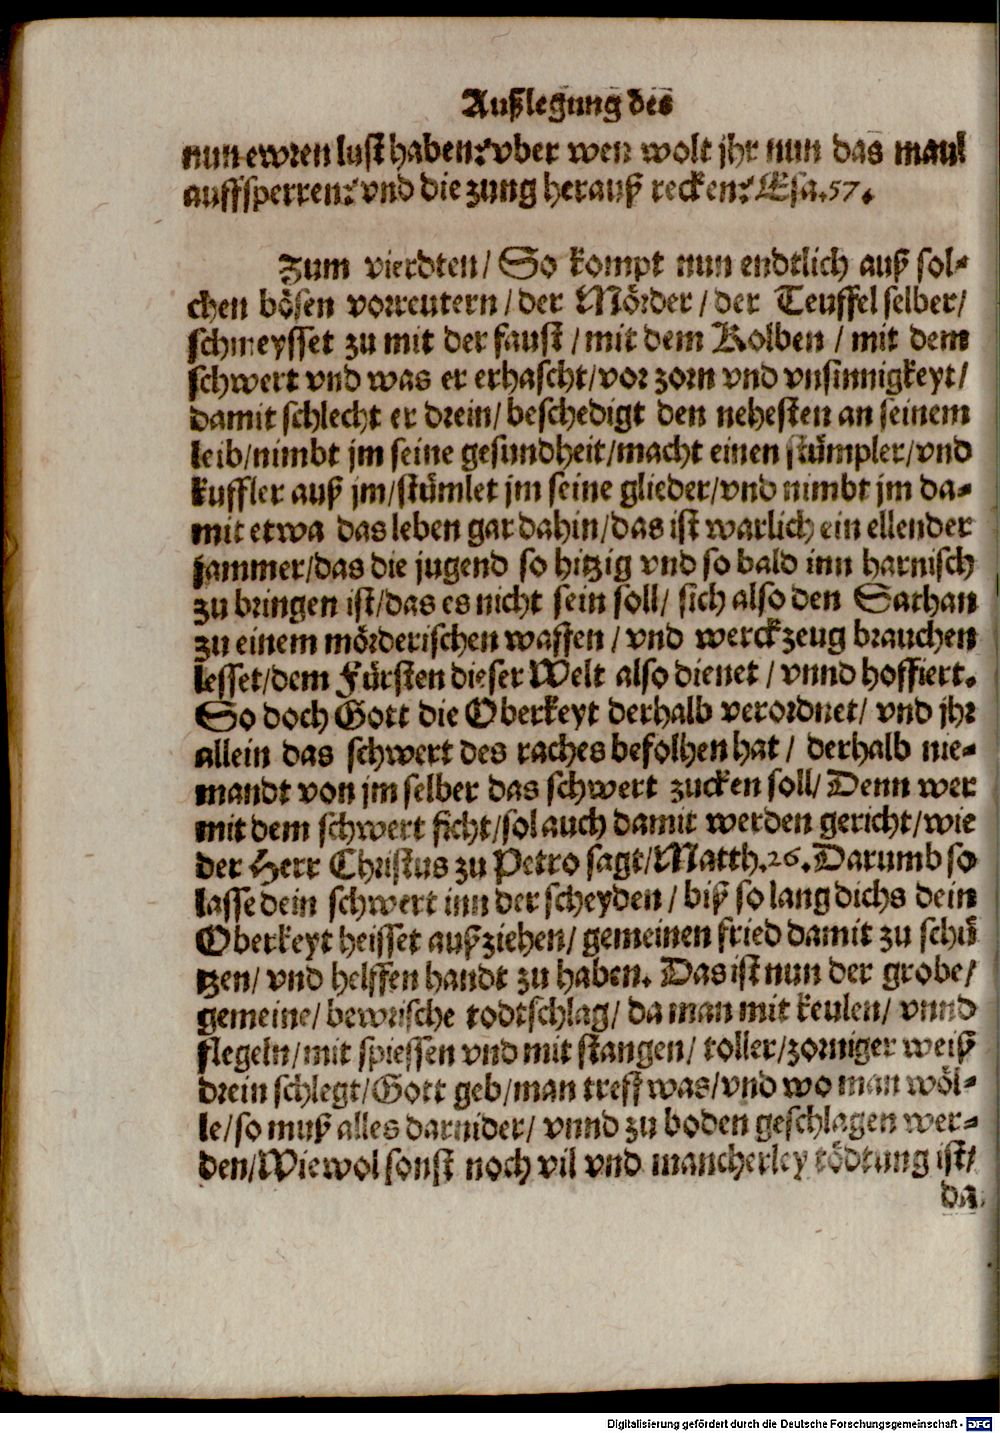 Außlegung des
nun ewren lust haben? vber wen wolt jhr nun das maul
auffsperren? vnd die zung herauß recken? Esa. 57.
Zum vierdten/ So kompt nun endtlich auß sol-
chen bösen vorreutern/ der Mörder/ der Teuffel selber/
schmeysset zu mit der faust/ mit dem Kolben/ mit dem
schwert vnd was er erhascht/ vor zorn vnd vnsinnigkeyt/
damit schlecht er drein/ beschedigt den nehesten an seinem
leib/ nimbt jm seine gesundheit/ macht einen stümpler/ vnd
kuffler auß jm/ stümlet jm seine glieder/ vnd nimbt jm da-
mit etwa das leben gar dahin/ das ist warlich ein ellender
jammer/ das die jugend so hitzig vnd so bald inn harnisch
zu bringen ist/ das es nicht sein soll/ sich also den Sathan
zu einem mörderischen waffen/ vnd werckzeug brauchen
lesset/ dem Fürsten dieser Welt also dienet/ vnnd hoffiert.
So doch Gott die Oberkeyt derhalb verordnet/ vnd jhr
allein das schwert des raches befolhen hat/ derhalb nie-
mandt von jm selber das schwert zucken soll/ Denn wer
mit dem schwert ficht/ sol auch damit werden gericht/ wie
der Herr Christus zu Petro sagt/ Matth. 26. Darumb so
lasse dein schwert inn der scheyden/ biß so lang dichs dein
Oberkeyt heisset außziehen/ gemeinen fried damit zu schü
tzen/ vnd helffen handt zu haben. Das ist nun der grobe/
gemeine/ bewrische todtschlag/ da man mit keulen/ vnnd
flegeln/ mit spiessen vnd mit stangen/ toller/ zorniger weiß
drein schlegt/ Gott geb/ man treff was/ vnd wo man wöl-
le/ so muß alles darnider/ vnnd zu boden geschlagen wer-
den/ Wiewol sonst noch vil vnd mancherley tödtung ist/
da
Digitalisierung gefördert durch die Deutsche Forschungsgemeinschaft - DFG